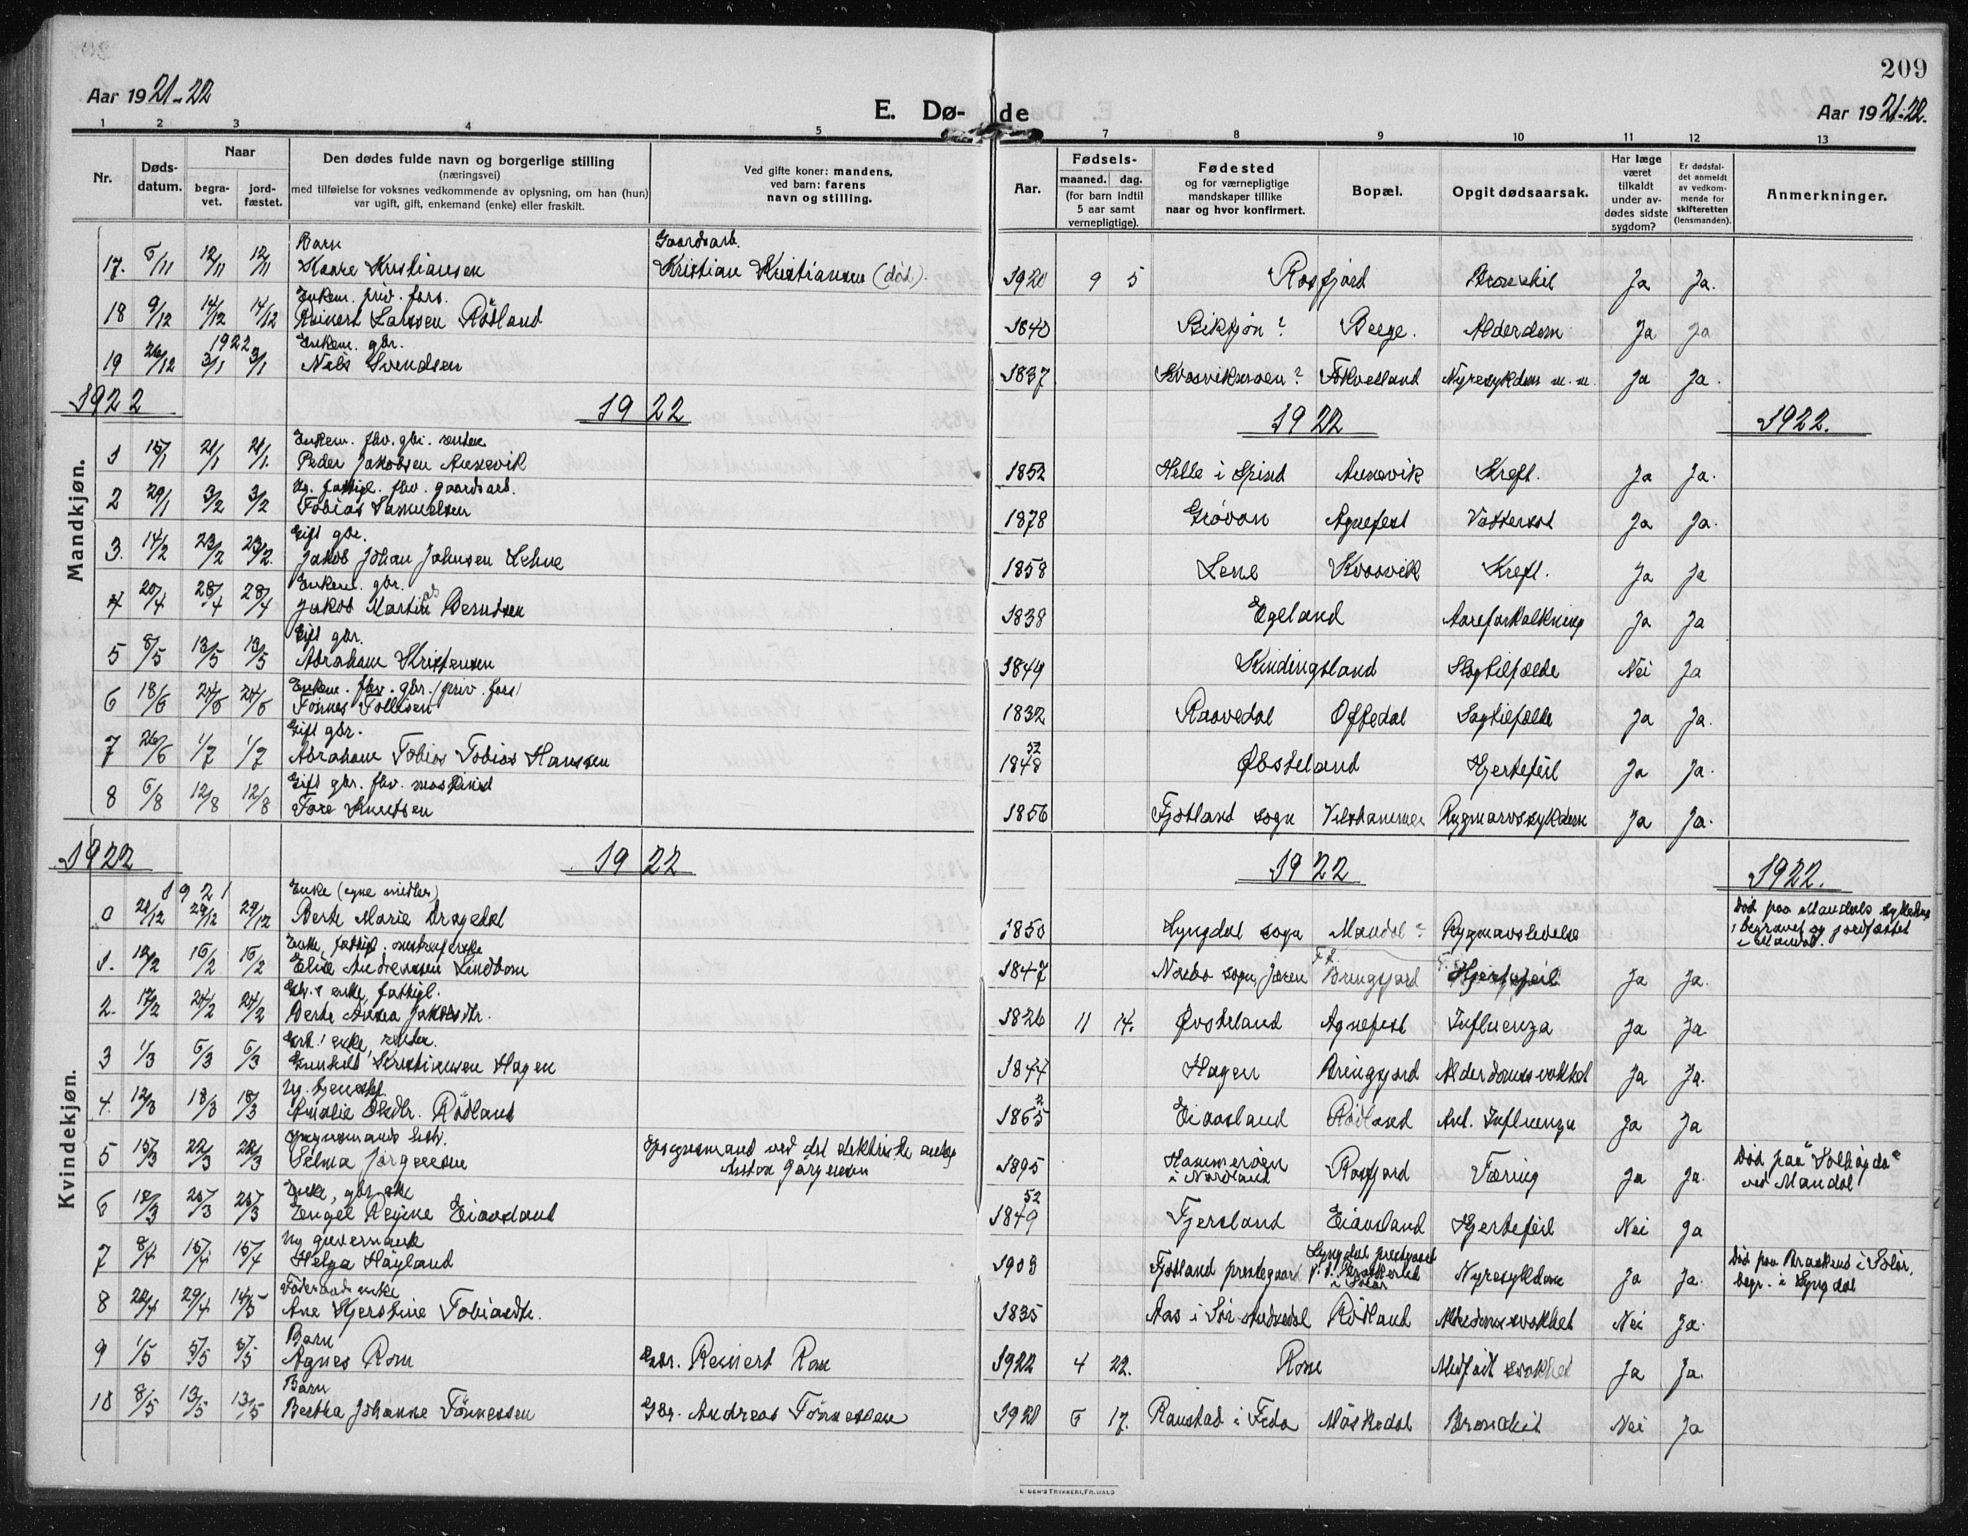 209
Aar 1921-22
E. Dø-de
Aar 1921-22.
1 2 3 4 5 7 8 9 10 11 12 13
Nr.
Døds-
datum.
Naar
begra-
vet.
jord-
fæstet.
Den dødes fulde navn og borgerlige stilling
(næringsvei)
med tilføielse for voksnes vedkommende av oplysning, om han (hun)
var ugift, gift, enkemand (enke) eller fraskilt.
Ved gifte koner: mandens,
ved barn: farens
navn og stilling.
Aar.
Fødsels-
maaned. dag.
(for barn indtil
5 aar samt
vernepligtige).
Fødested
og for værnepligtige
mandskaper tillike
naar og hvor konfirmert.
Bopæl.
Opgit dødsaarsak.
Har læge
været
tilkaldt
under av-
dødes sidste
sygdom?
Er dødsfal-
det anmeldt
av vedkom-
mende for
skifteretten
(lensmanden).
Anmerkninger.
Barn Gaardsarb.
17. 5/11 12/11 12/11 Kaare Kristiansen Kristian Kristiansen (død). 1920 9 5 Rosfjord Bronkit Ja Ja.
Enkem. priv. fors.
18 9/12 14/12 14/12 Reinert Larssen Rødland 1840 Birkjøn? Berge. Alderdom Ja Ja
1922 Enkem. gbr.
19 26/12 3/1 3/1 Nils Svendsen 1837 Kvasvikmoen? Kvelland Nyresykdom m. m. Ja Ja.
1922 1922 1922 1922.
Mandkjøn.
Enkem. fhv. gbr.
1 15/1 21/1 21/1. Peder Jakobsen Aunevik 1852 Helle i Spind Aunevik Kreft. Ja Ja.
Ug. fattigl. fhv. gaardsarb.
2 29/1 3/2 3/2 Tobias Samuelsen 1878 Grövan Agnefest Vattersot Ja Ja.
Gift gbr.
3. 14/2 23/2 23/2. Jakob Johan Johnsen Lehne 1858 Lene Kvavik Kreft. Ja Ja
Enkem. gbr.
4 20/4 28/4 28/4 Jakob Martin Berntsen 1838 Egeland Aareforkalkning Ja Ja
Gift gbr.
5 8/5 13/5 13/5 Abraham Kristensen 1849 Kindingsland Slagtilfælde Nei Ja
Enkem. fhv. gbr. (priv. fors)
6 18/5 24/5 24/5 Tønnes Tollisen 1832 Raavedal Offedal Slagtilfælde Ja Ja.
Gift gbr.
7 26/6 1/7 1/7 Abraham Tobias Tobias Hanssen 1848 52 Øbsteland Hjertefeil Ja Ja.
Gift gbr. fhv. maskinist
8 6/8 12/8 12/8 Tore Knutsen 1856 Fjotland sogn Rygmarvssykdom Ja Ja.
1922 1922 1922 1922.
Kvindekjøn.
1921 Enke (egne midler)
0 21/12 29/12 29/12 Berte Marie Dragedal 1850 Lyngdal sogn Mandal? Rygmarvslidelse Død paa Mandals sykehus
begravet og jordfæstet
i Mandal.
Enke, fattigl.
1. 12/2 16/2 16/2 Elise Andreassen Lindbom 1847 Nærbø sogn, Jæren Bringsjord Hjertefeil Ja Ja.
enke, fattigl.
2. 17/2 24/2 24/2 Berte Anna Jakobsdtr. 1826 11 14. Øvsteland Agnefest Influenza Ja Ja.
enke
3 1/3 6/3 6/3 Gunhild Kristiansen Hagen 1844 Hagen Bringsjord Alderdomssvakhet Ja Ja.
4. 12/3 18/3 18/3 Amalie Rödland 1865 2 Eiaasland Rödland Influenza Ja Ja
Selma Jørgensen
5 15/3 22/3 22/3 Opsynsmand ved det elektriske anlæg
Anton Jørgensen
1895 Hammerøen
i Nordland Rosfjord Tæring Ja Ja. Død paa "Solhøgda"
ved Mandal
Enke
6 18/3 25/3 25/3 Engel Regine Eiaasland 1849 52 Fjersland Eiaasland Hjertefeil Nei Ja
Ug guvernante
7 8/4 15/4 15/4 Helga Høyland 1903 Fjotland prestegaard Lyngdal prestgaard Nyresykdom Ja Ja. Død paa Braskerud i Solør,
begr. i Lyngdal
Föderaadsenke
8 22/4 29/4 14/5 Ane Kjerstine Tobiasdtr. 1835 Aas i Sör Audnedal Rödland Alderdomssvakhet Nei Ja.
Barn
9 1/5 5/5 5/5 Agnes Rom Gbr. Reinert Rom 1922 4 22. Rom Medfødt svakhet Ja Ja.
Barn
10 8/5 13/5 13/5 Bertha Johanne Tönnessen Gbr. Andreas Tönnessen 1920 6 17. Ranstad i Feda Möskedal Bronkit Nei Ja